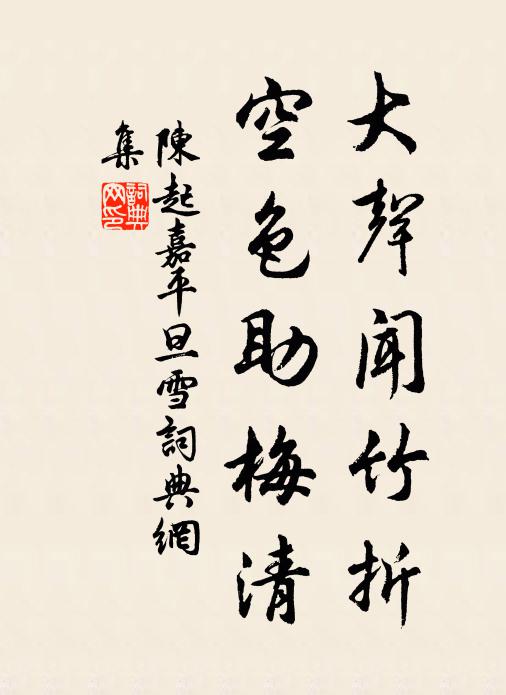 大聲聞竹折
空色助梅清
陳起嘉平旦雪詞典網
集
詞典
网印